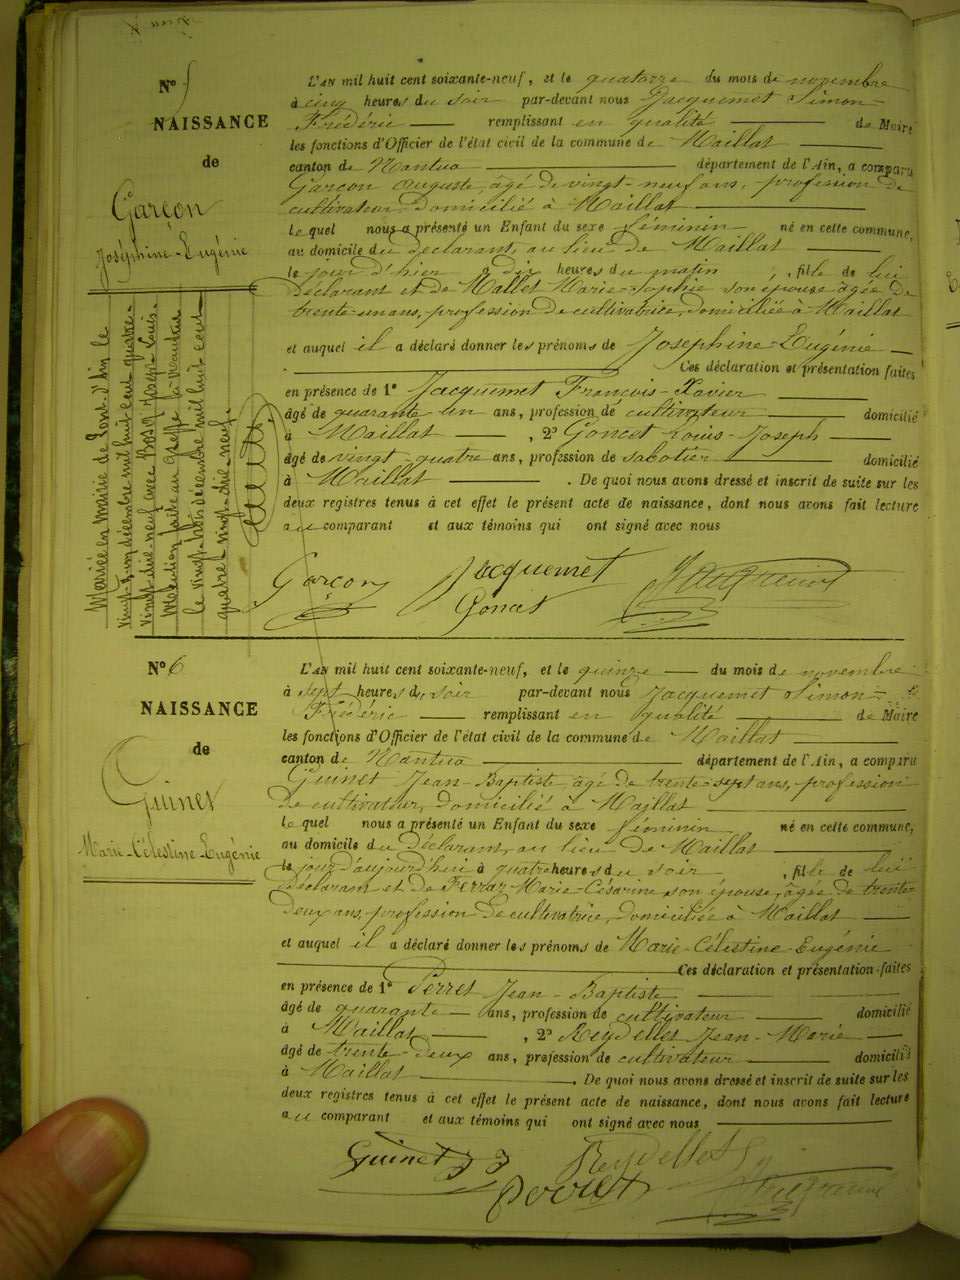 N° 5
NAISSANCE
de
Garçon
Joséphine-Eugénie
Mariée en mairie de Pont-d'Ain le
vingt-un décembre mil huit cent quatre-
vingt-dix-neuf avec Joseph-Louis.
Mention faite au Greffe
le vingt-trois décembre mil huit cent
quatre-vingt-dix-neuf.
L'AN mil huit cent soixante-neuf, et le quatorze du mois de novembre
à cinq heures du soir par-devant nous Jacquemet Simon-
Frédéric remplissant en qualité de Maire
les fonctions d'Officier de l'état civil de la commune de Maillat
canton de Nantua département de l'Ain, a comparu
Garçon Auguste, âgé de vingt-neuf ans, profession de
cultivateur, domicilié à Maillat
lequel nous a présenté un Enfant du sexe féminin né en cette commune,
au domicile du déclarant, au lieu de Maillat
le jour d'hier à dix heures du matin, fille de lui
déclarant et de Mallet Marie-Sophie son épouse âgée de
trente-un ans, profession de cultivatrice, domiciliée à Maillat
et auquel il a déclaré donner les prénoms de Joséphine-Eugénie
Ces déclaration et présentation faites
en présence de 1° Jacquemet François-Xavier
âgé de quarante un ans, profession de cultivateur domicilié
à Maillat, 2° Goncet Louis-Joseph
âgé de vingt-quatre ans, profession de sabotier domicilié
à Maillat. De quoi nous avons dressé et inscrit de suite sur les
deux registres tenus à cet effet le présent acte de naissance, dont nous avons fait lecture
au comparant et aux témoins qui ont signé avec nous
Garçon Jacquemet
Goncet
N° 6
NAISSANCE
de
Guinet
Marie-Célestine-Eugénie
L'AN mil huit cent soixante-neuf, et le quinze du mois de novembre
à sept heures du soir par-devant nous Jacquemet Simon-
Frédéric remplissant en qualité de Maire
les fonctions d'Officier de l'état civil de la commune de Maillat
canton de Nantua département de l'Ain, a comparu
Guinet Jean-Baptiste âgé de trente-sept ans, profession
de cultivateur, domicilié à Maillat
lequel nous a présenté un Enfant du sexe féminin né en cette commune,
au domicile du déclarant, au lieu de Maillat
le jour d'aujourd'hui à quatre heures du soir, fille de lui
déclarant et de Ferraz Marie-Césarine son épouse, âgée de trente-
deux ans, profession de cultivatrice, domiciliée à Maillat
et auquel il a déclaré donner les prénoms de Marie-Célestine Eugénie
Ces déclaration et présentation faites
en présence de 1° Perret Jean-Baptiste
âgé de quarante ans, profession de cultivateur domicilié
à Maillat, 2° Reydellet Jean-Marie
âgé de trente-deux ans, profession de cultivateur domicilié
à Maillat. De quoi nous avons dressé et inscrit de suite sur les
deux registres tenus à cet effet le présent acte de naissance, dont nous avons fait lecture
au comparant et aux témoins qui ont signé avec nous
Guinet Reydellet
Perret